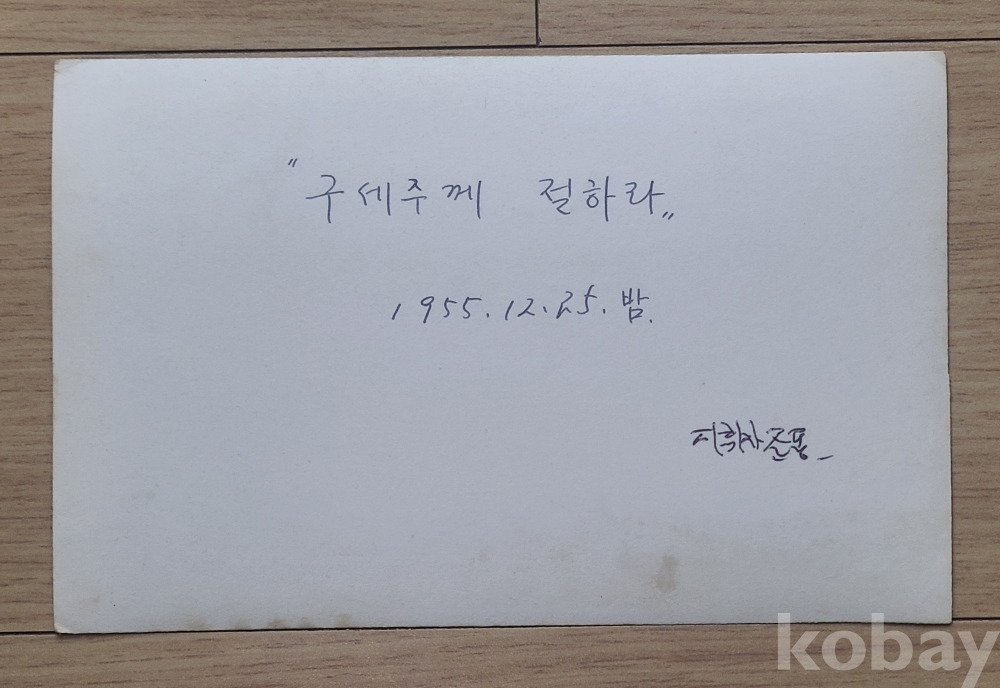 "구세주께 절하라"
1955.12.25. 밤.
지휘자
kobay